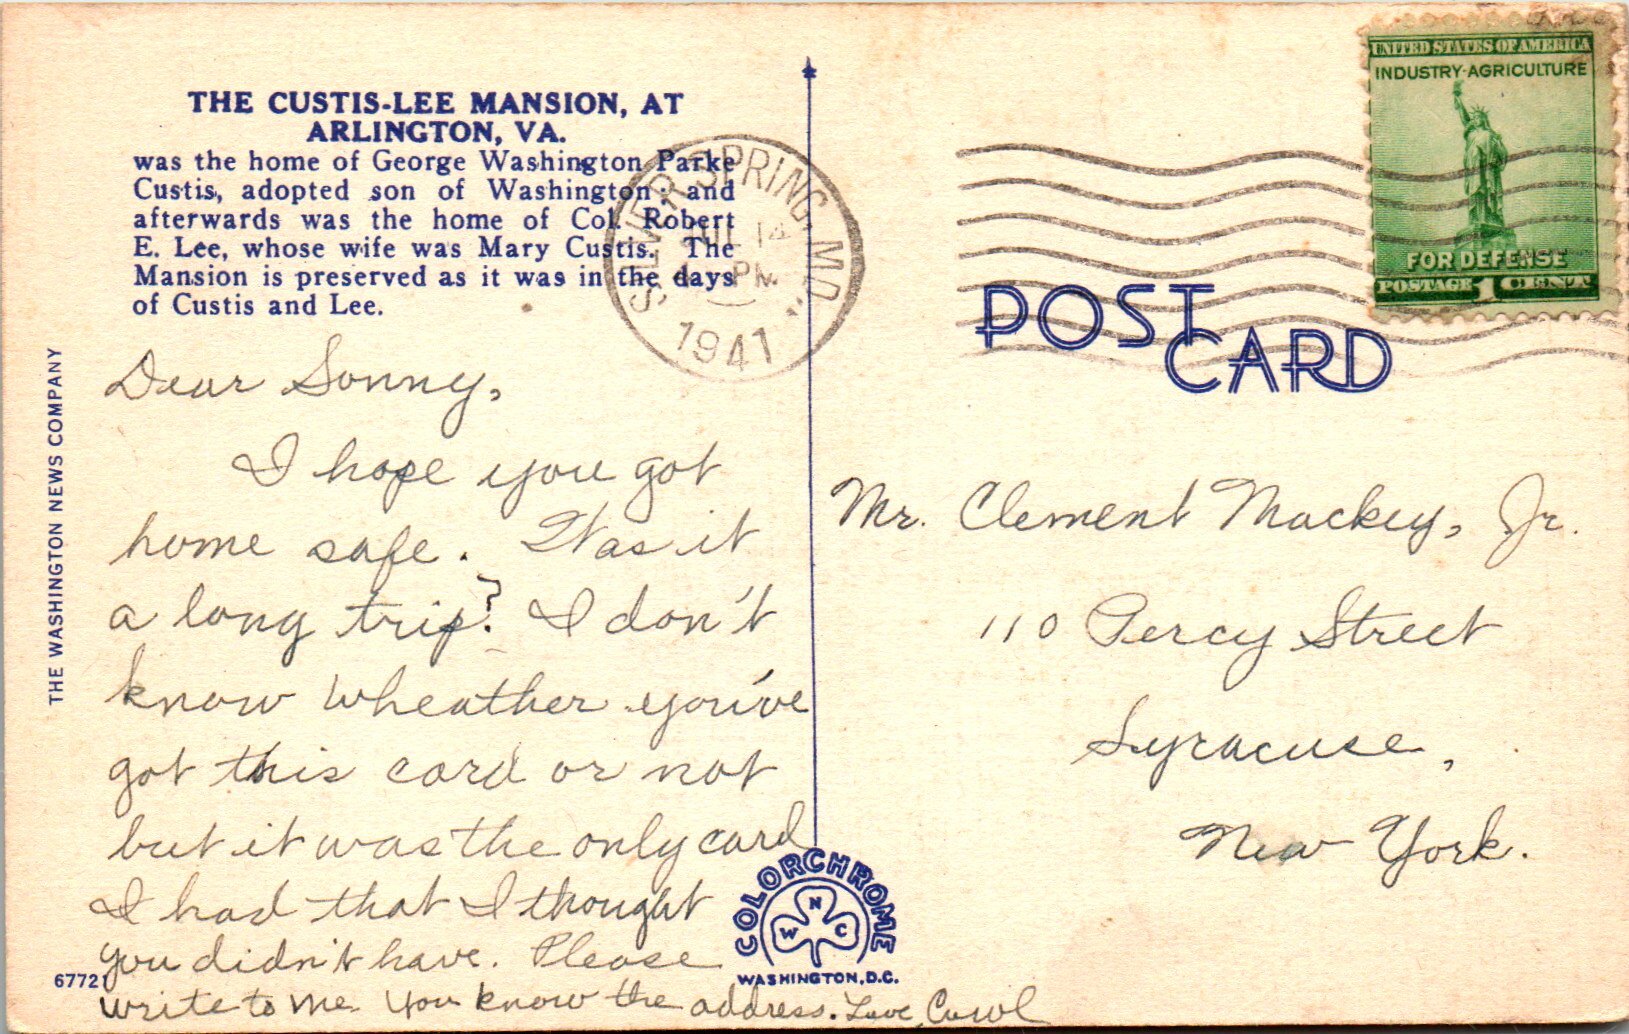 THE CUSTIS-LEE MANSION, AT
ARLINGTON, VA.
was the home of George Washington Parke
Custis, adopted son of Washington; and
afterwards was the home of Col. Robert
E. Lee, whose wife was Mary Custis. The
Mansion is preserved as it was in the days
of Custis and Lee.
THE WASHINGTON NEWS COMPANY
Dear Sonny,
I hope you got
home safe. Was it
a long trip? I don't
know wheather you've
got this card or not
but it was the only card
I had that I thought
you didn't have. Please
write to me. You know the address. Love, Carol
67721
SILVER SPRING, MD.
JUL 14
PM
1941
UNITED STATES OF AMERICA
INDUSTRY-AGRICULTURE
FOR DEFENSE
POSTAGE 1 CENT
POST
CARD
Mr. Clement Mackey, Jr.
110 Percy Street
Syracuse,
New York.
COLORCHROME
N
W C
WASHINGTON, D.C.